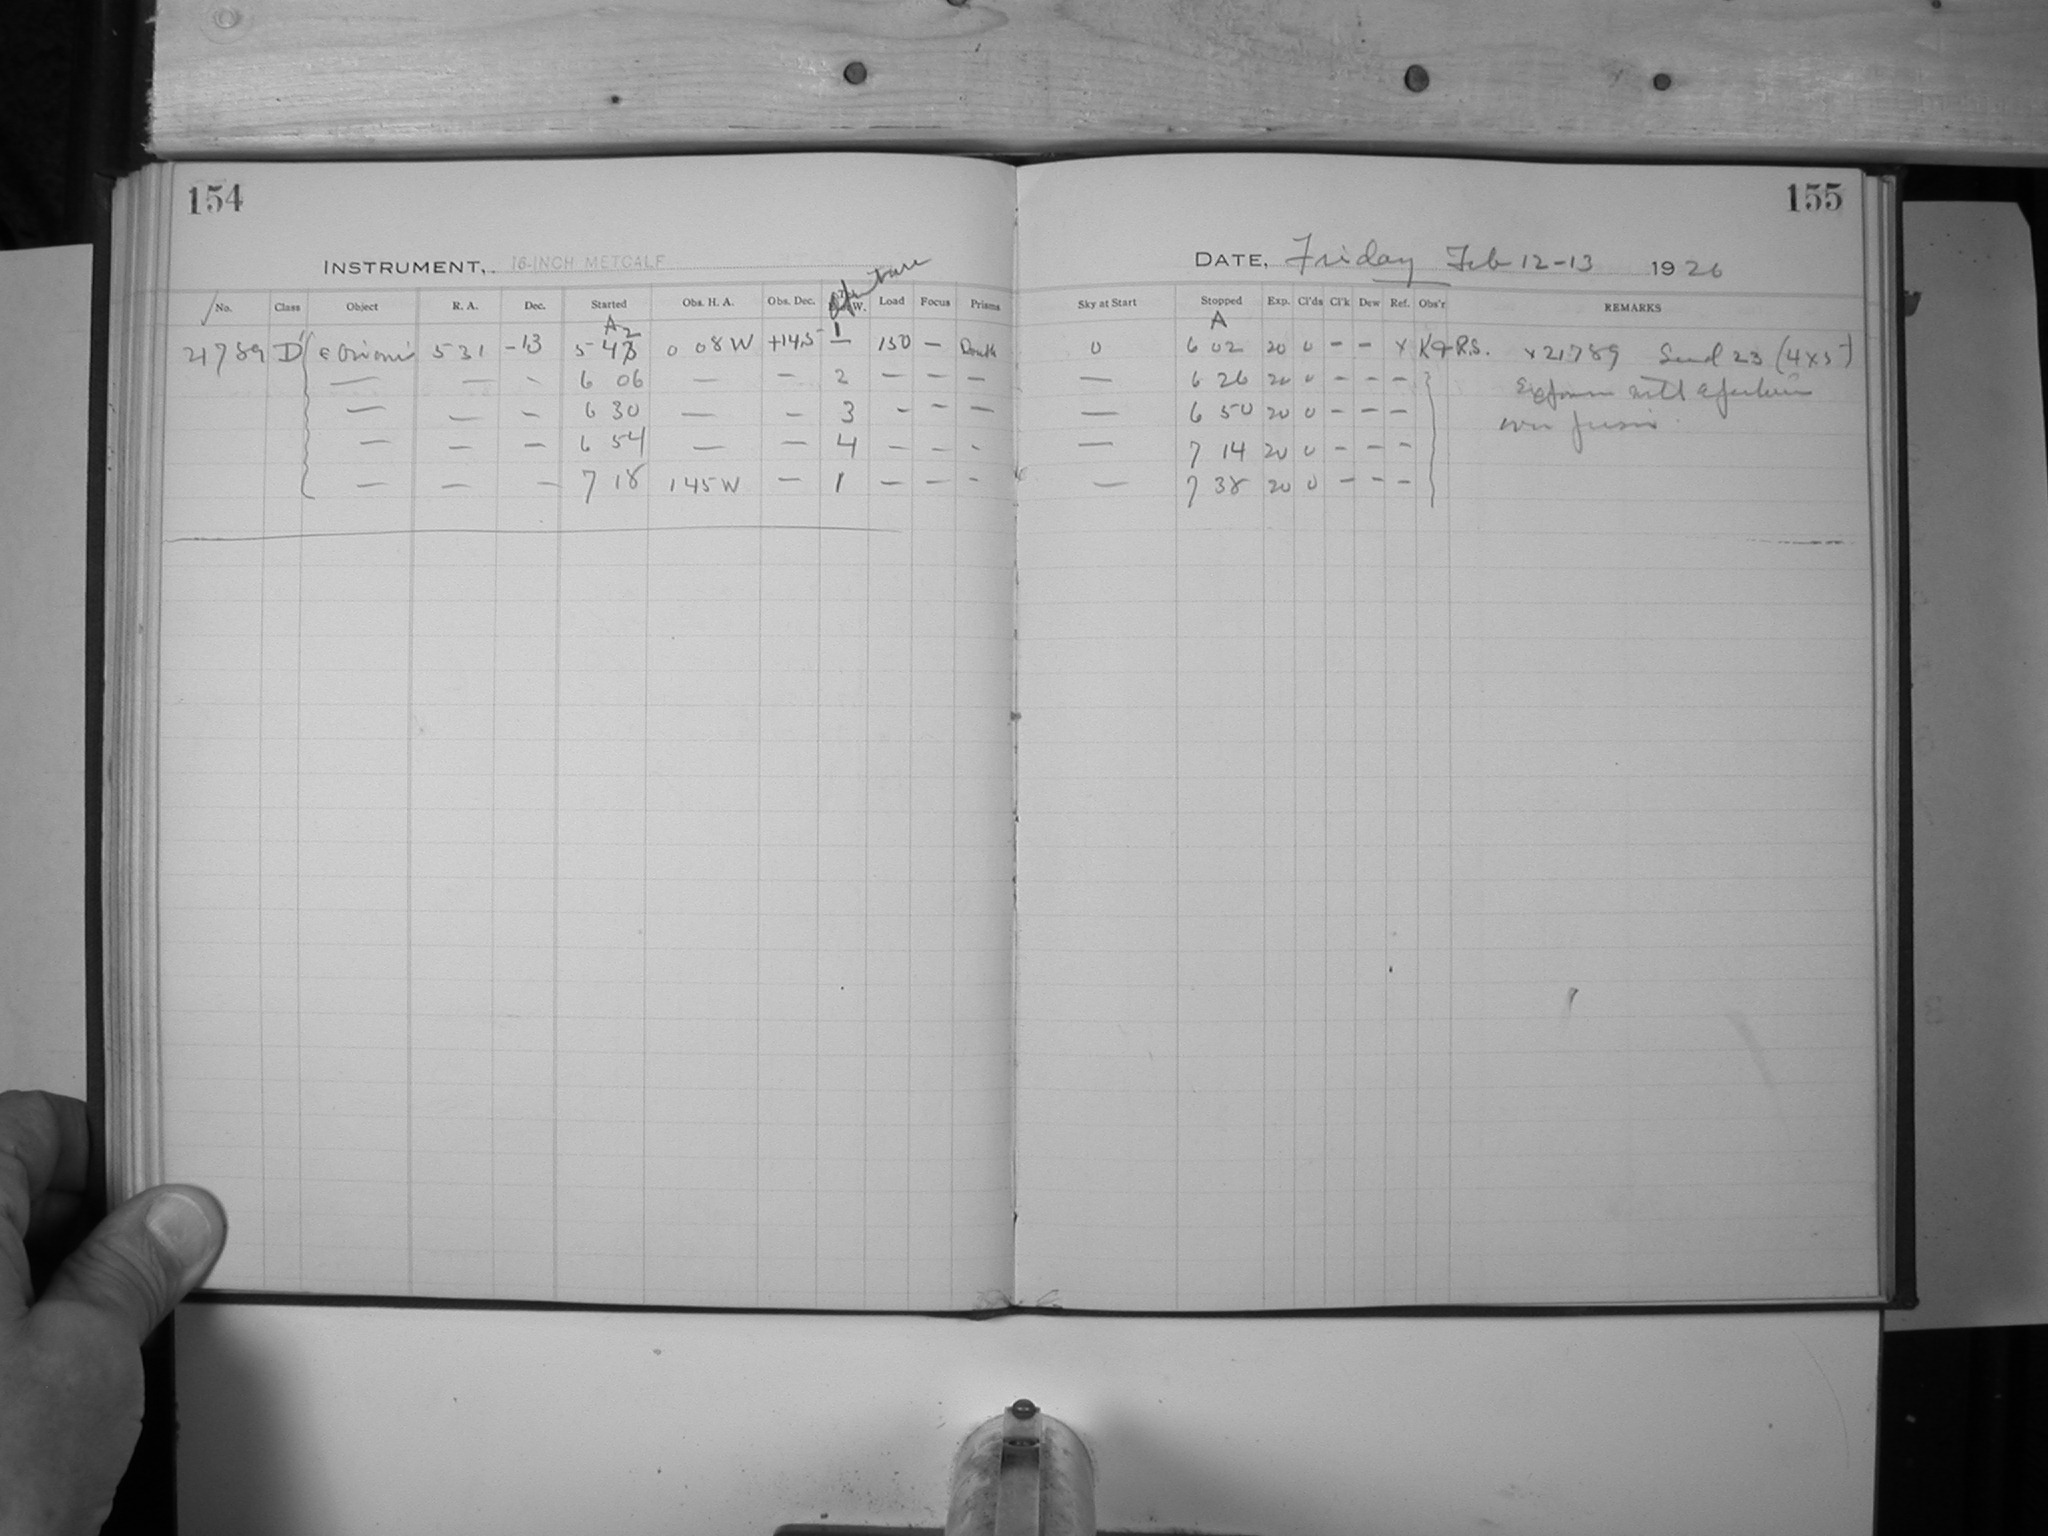 154
155
INSTRUMENT, 16-INCH METCALF
DATE, Friday Feb 12-13 1926
Aperture
No. Class Object R. A. Dec. Started Obs. H. A. Obs. Dec. Load Focus Prisms Sky at Start Stopped Exp. Cl'ds Cl'k Dew Ref. Obs'r REMARKS
A 2 1 A
21789 D ε Orionis 5 31 -13 5 43 0 08 W +14.5 — 150 — 0 6 02 20 0 — — x K & R.S. x21789 Seed 23 (4x5)
— — - 6 06 — — 2 — — — — 6 26 20 0 — — — with aperture
— — — 6 30 — — 3 — — — — 6 50 20 0 — — — over
— — — 6 54 — — 4 — — - — 7 14 20 0 — — —
— — — 7 18 1 45 W — 1 — — - — 7 38 20 0 — — —